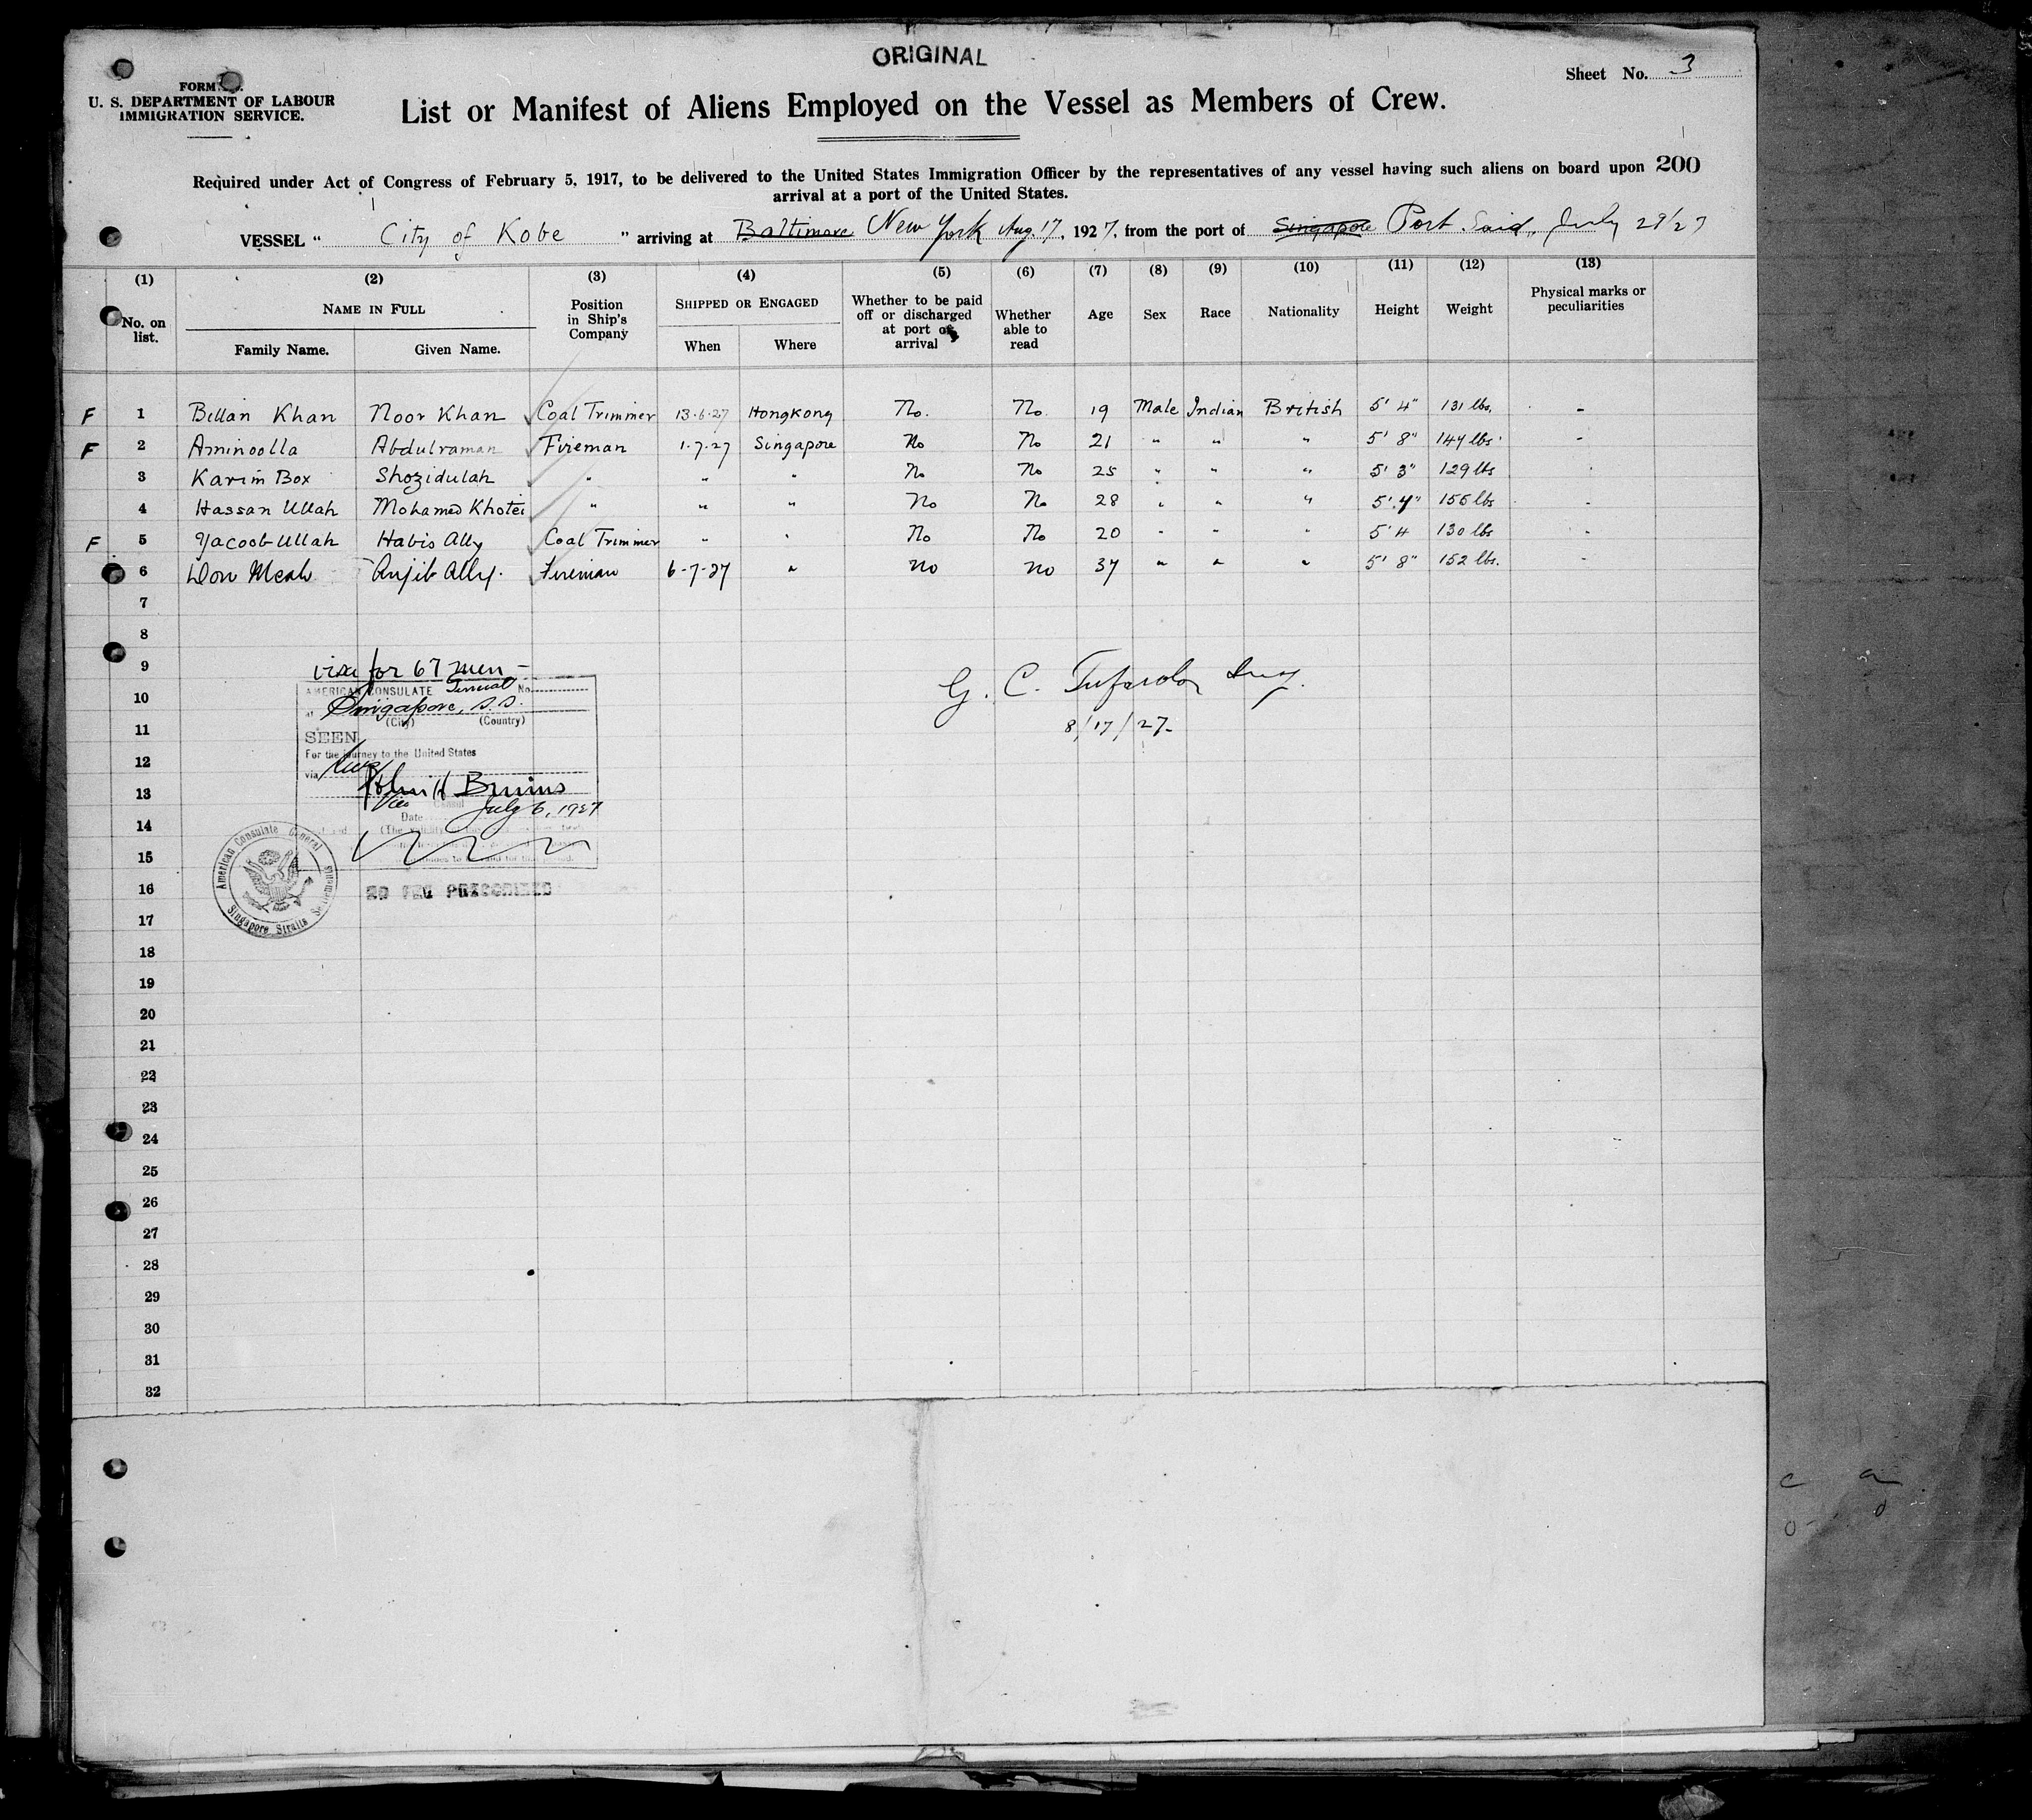 ORIGINAL
Sheet No. 3
FORM
U. S. DEPARTMENT OF LABOUR
IMMIGRATION SERVICE.
List or Manifest of Aliens Employed on the Vessel as Members of Crew.
Required under Act of Congress of February 5, 1917, to be delivered to the United States Immigration Officer by the representatives of any vessel having such aliens on board upon 200
arrival at a port of the United States.
VESSEL " City of Kobe " arriving at Baltimore New York Aug. 17, 1927, from the port of Singapore Port Said, July 29/27
(1) (2) (3) (4) (5) (6) (7) (8) (9) (10) (11) (12) (13)
No. on list. NAME IN FULL Position in Ship's Company SHIPPED OR ENGAGED Whether to be paid off or discharged at port of arrival Whether able to read Age Sex Race Nationality Height Weight Physical marks or peculiarities
Family Name. Given Name. When Where
F 1 Billan Khan Noor Khan Coal Trimmer 13-6-27 Hongkong No. No. 19 Male Indian British 5' 4" 131 lbs. -
F 2 Aminoolla Abdulraman Fireman 1-7-27 Singapore No No 21 " " " 5' 8" 144 lbs. -
3 Karim Box Shozidulah " " " No No 25 " " " 5' 3" 129 lbs
4 Hassan Ullah Mohamed Khotei " " " No No 28 " " " 5' 4" 155 lbs -
F 5 Yacoob Ullah Habis Ally Coal Trimmer " " No No 20 " " " 5' 4 130 lbs -
6 Don Meah Anjib Ally. Fireman 6-7-27 " no no 37 " " " 5' 8" 152 lbs. -
7
8
9
10
11
12
13
14
15
16
17
18
19
20
21
22
23
24
25
26
27
28
29
30
31
32
visa for 67 men -
AMERICAN CONSULATE General No.
at Singapore, S.S.
(City) (Country)
SEEN
For the journey to the United States
via
John H Bruins
Vice Consul
Date July 6, 1927
American Consulate General
Singapore Straits Settlements
NO FEE PRESCRIBED
G. C.
8/17/27-